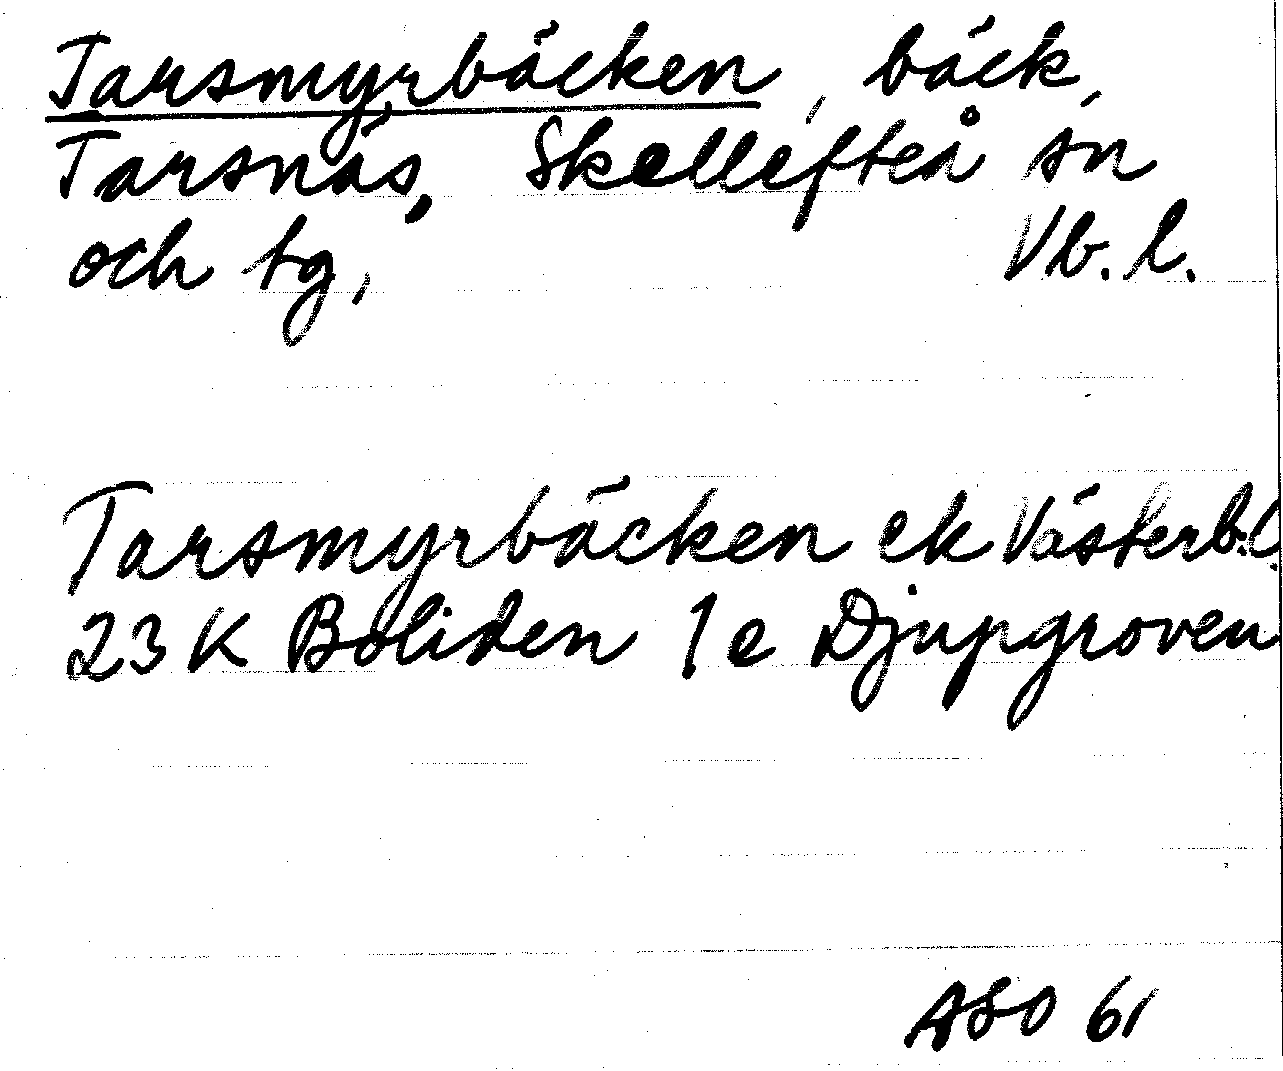 Tarsmyrbäcken, bäck,
Tarsnäs, Skellefteå sn
och tg, Vb. l.
Tarsmyrbäcken ek Västerb.l.
23 K Boliden 1 e Djupgroven
ASO 61